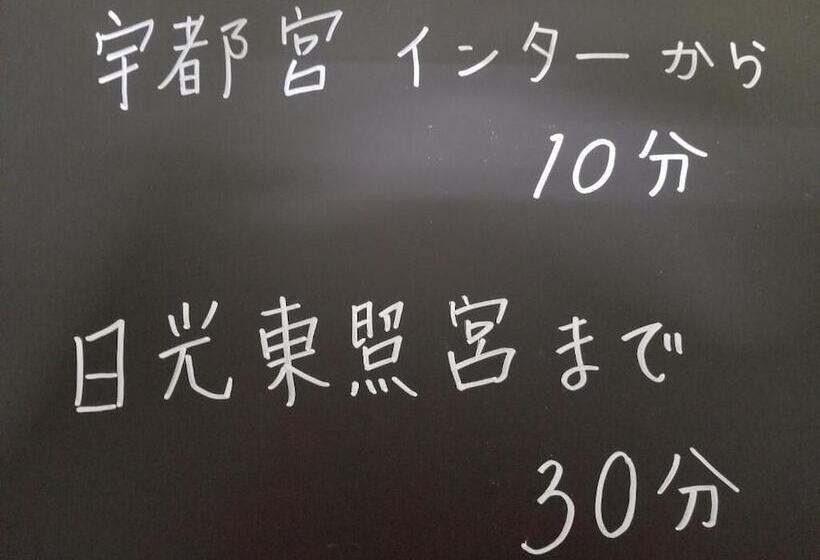 宇都宮 インターから
10分
日光東照宮まで
30分